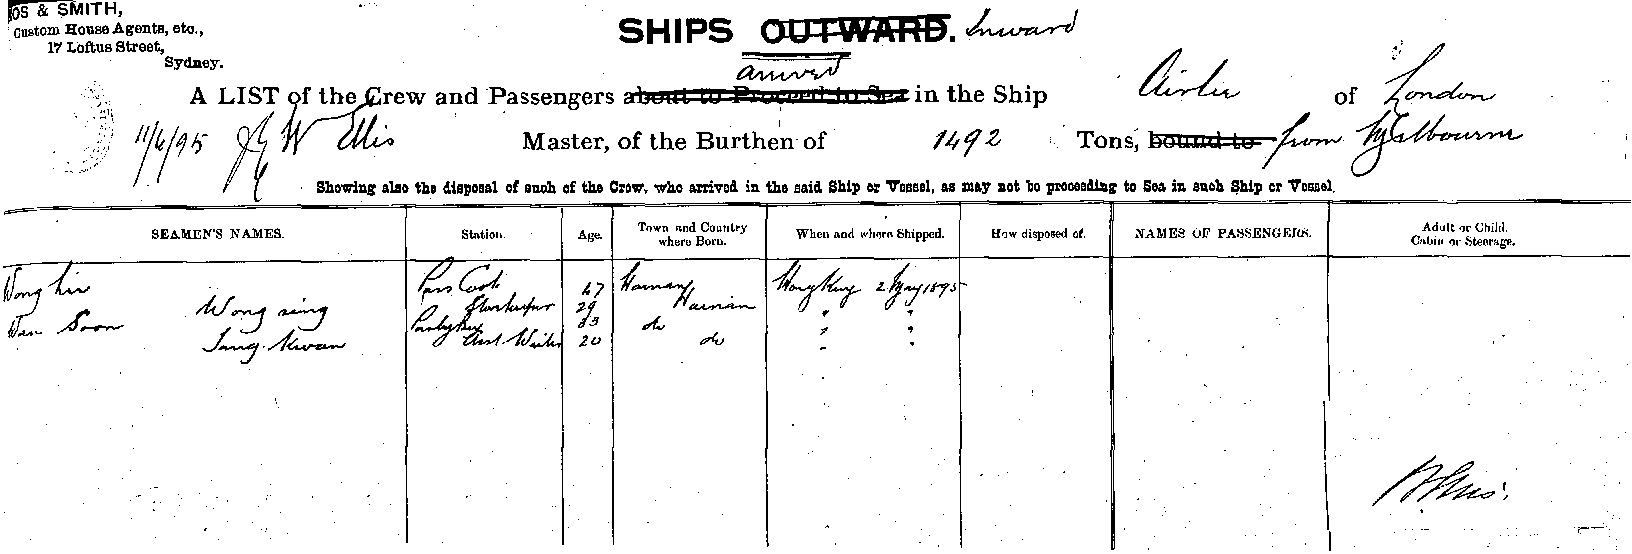 OS & SMITH,
Custom House Agents, etc.,
17 Loftus Street,
Sydney.
SHIPS OUTWARD. Inward
arrived
A LIST of the Crew and Passengers about to Proceed to Sea in the Ship Airlie of London
11/6/95 W Ellis Master, of the Burthen of 1492 Tons, bound to from Melbourne
Showing also the disposal of such of the Crew, who arrived in the said Ship or Vessel, as may not be proceeding to Sea in such Ship or Vessel.
SEAMEN'S NAMES. Station. Age. Town and Country where Born. When and where Shipped. How disposed of. NAMES OF PASSENGERS. Adult or Child. Cabin or Steerage.
Wong Cook 47 Hainan Hong Kong 2 May 1895
Wong sing 29 Hainan " "
Soon 33 do " "
Kwan Asst. Waiter 20 do " "
Ellis.